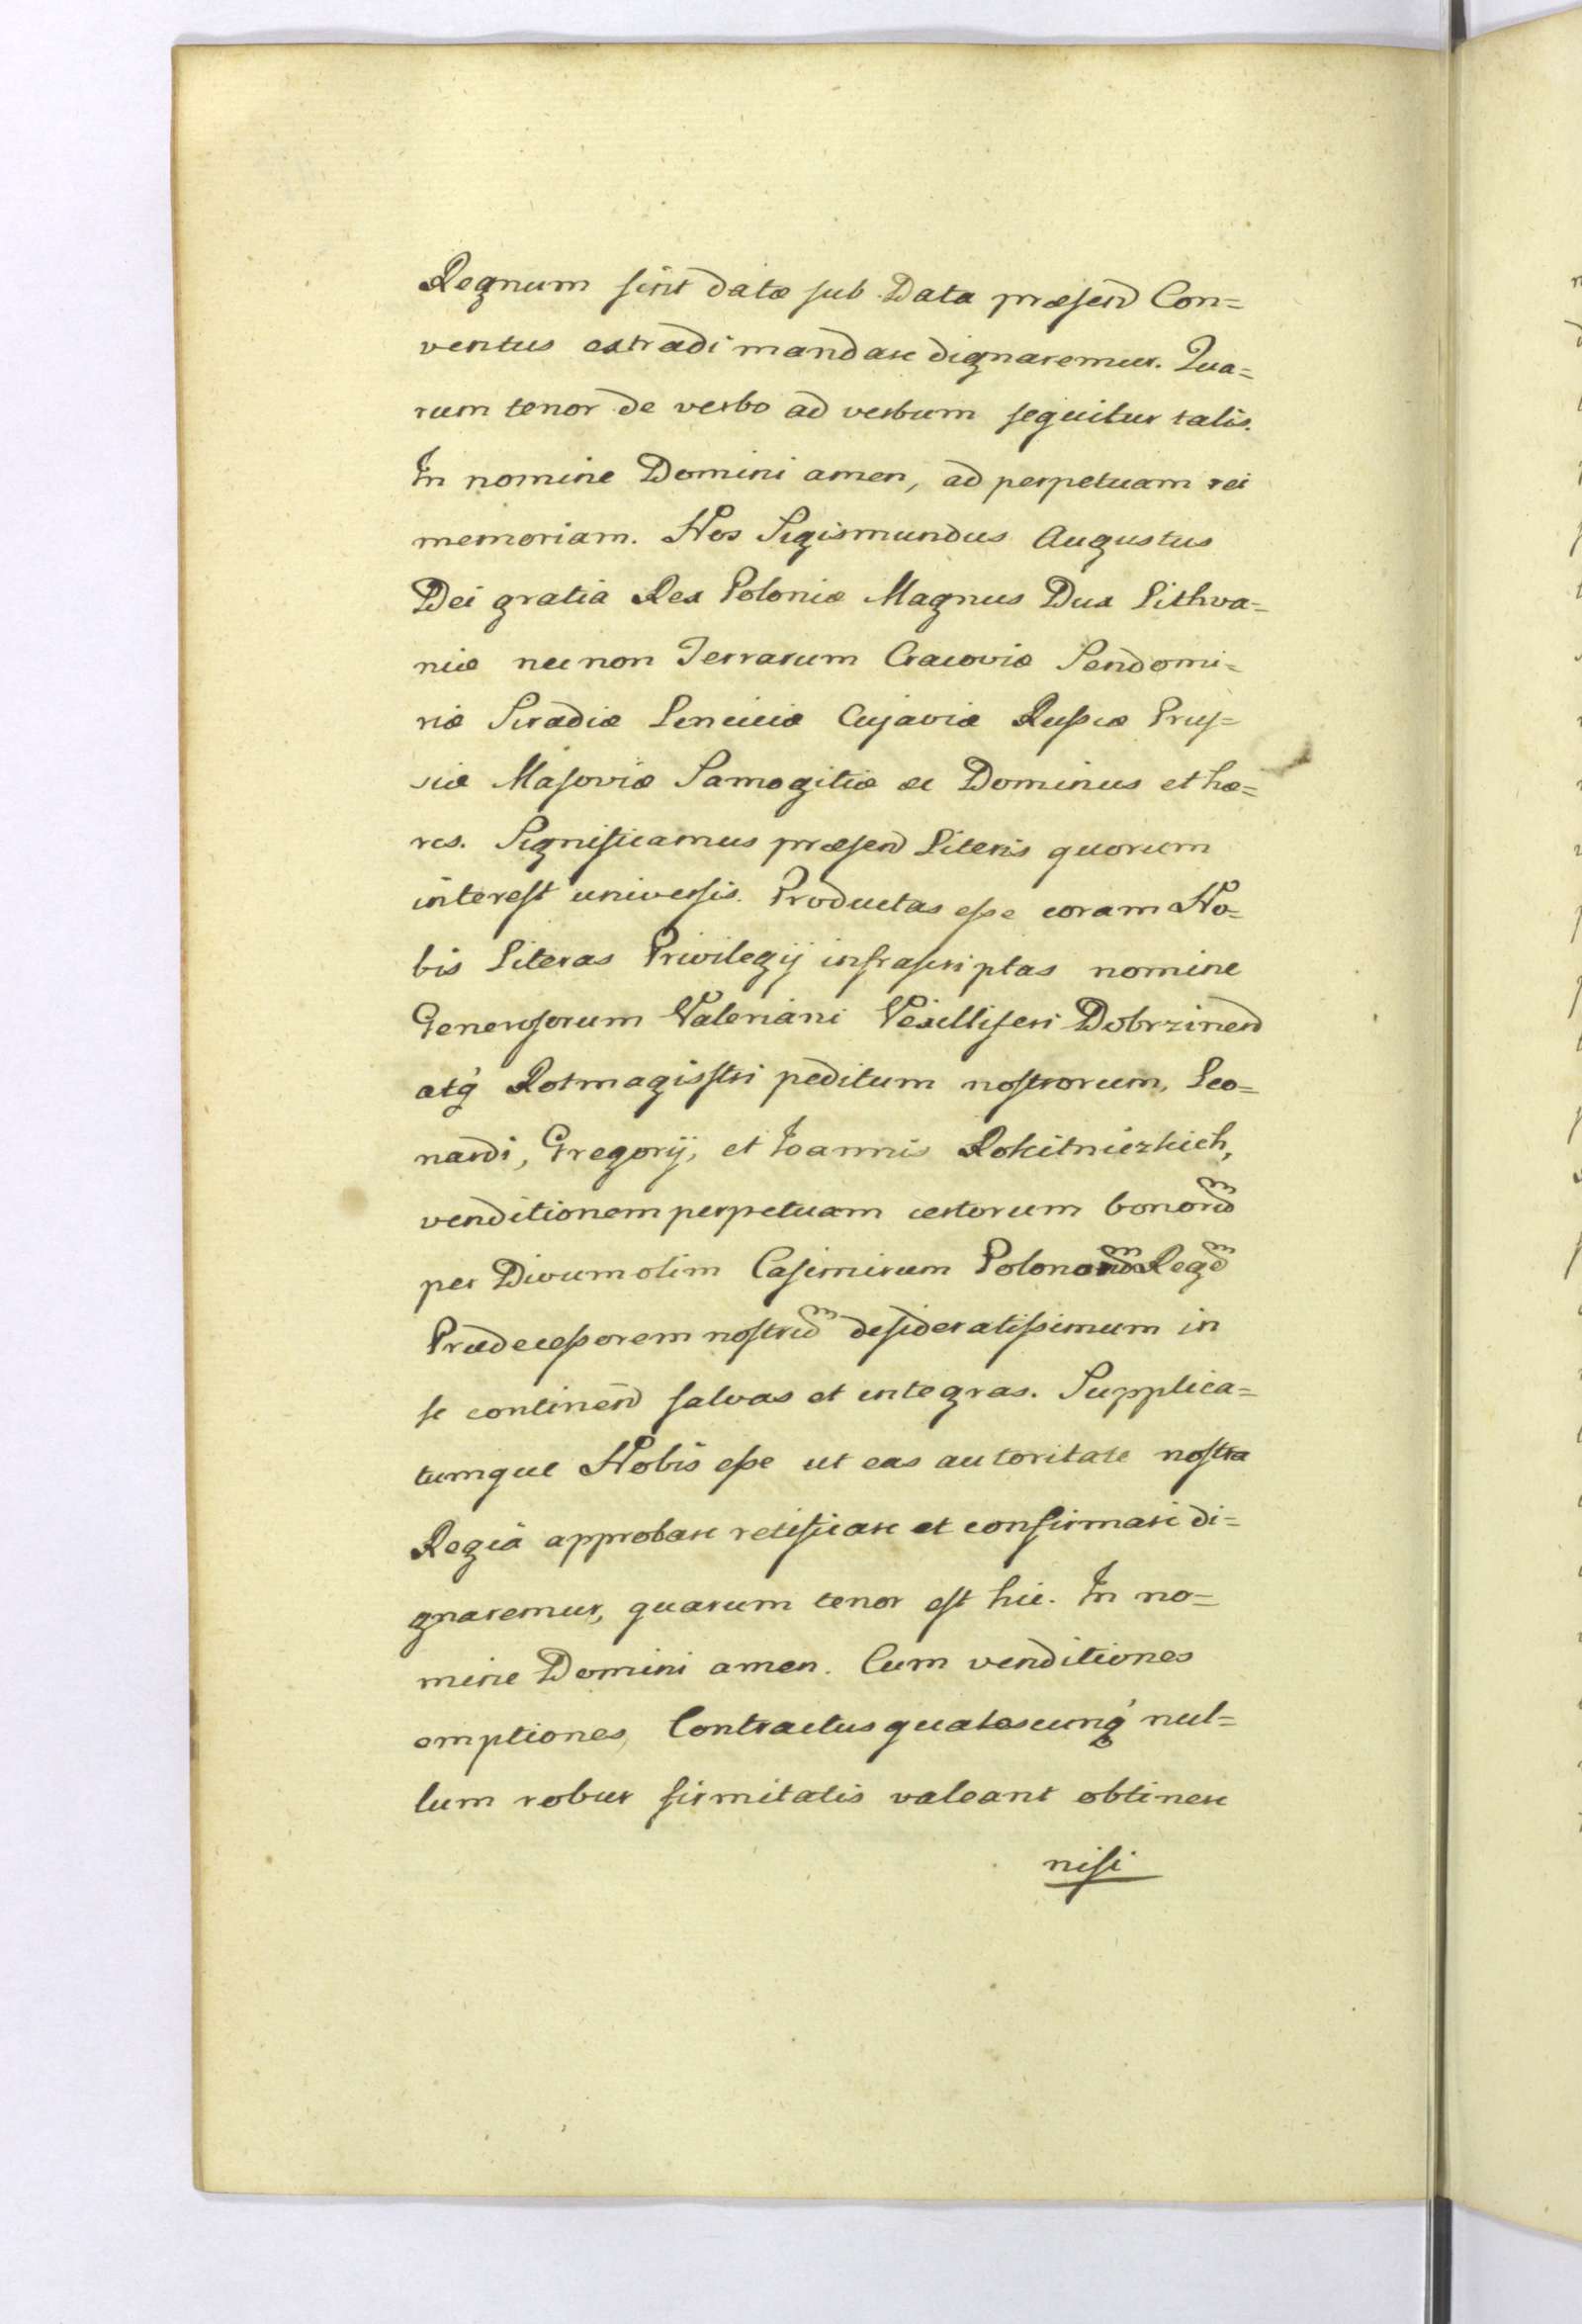 Regnum sint datæ sub Data præsend Con=
ventus extradi mandare dignaremur. Qua=
rum tenor de verbo ad verbum sequitur talis.
In nomine Domini amen, ad perpetuam rei
memoriam. Nos Sigismundus Augustus
Dei gratia Rex Poloniæ Magnus Dux Lithva=
niæ nec non Terrarum Cracoviæ Sendomi=
riæ Siradiæ Lenciciæ Cujaviæ Russiæ Prus=
siæ Masoviæ Samogitiæ æc Dominus et hæ=
res. Significamus præsend Literis quorum
interest universis. Productas esse coram No=
bis Literas Privilegij infrascriptas nomine
Generosorum Valeriani Vexilliferi Dobrzinend
atq́ Rotmagisstri peditum nostrorum, Leo=
nardi, Gregorij, et Joannis Rokitniczkich,
venditionem perpetuam certorum bonorum̃
per Divum olim Casimirum Polonorum̃ Regem̃
Prædecessorem nostrum̃ desideratissimum in
se continend salvas et integras. Supplica=
tumque Nobis esse ut eas autoritate nostra
Regia approbare retificare et confirmare di=
gnaremur, quarum tenor est hic. In no=
mine Domini amen. Cum venditiones
emptiones, Contractus qualescunq́ nul=
lum robur firmitatis valeant obtinere
nisi